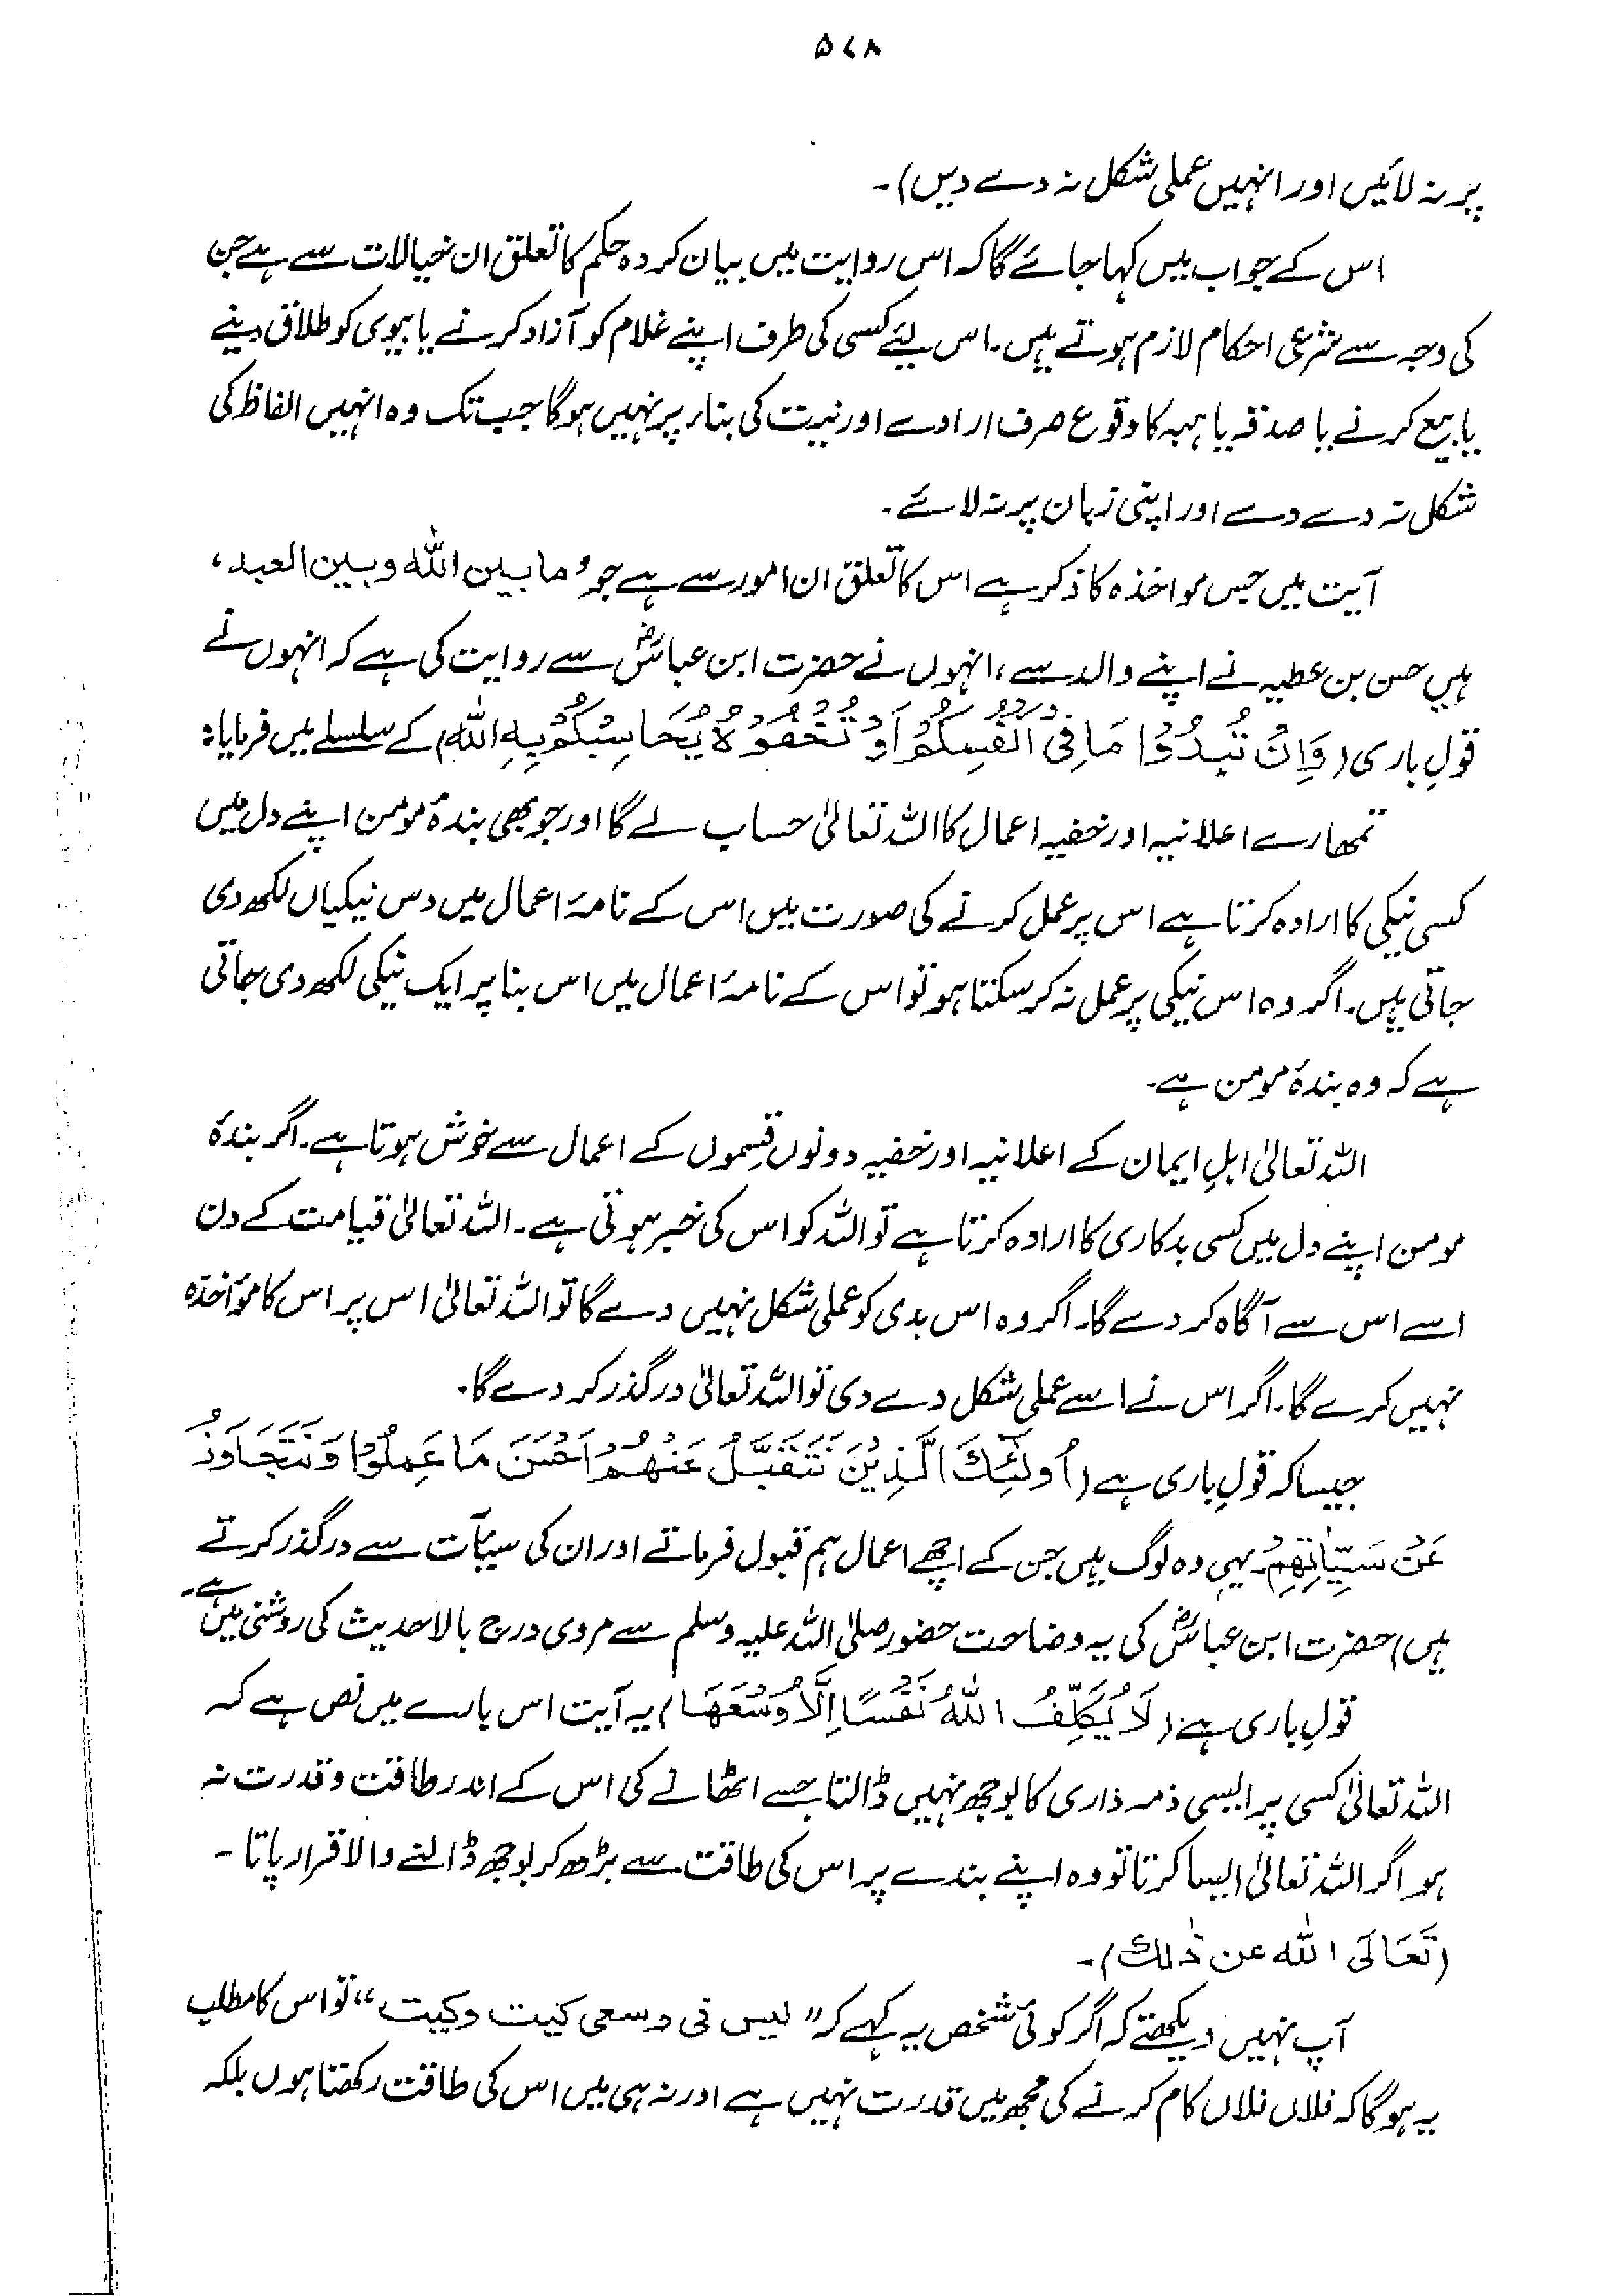 ۵۷۸
پر نہ لائیں اور انہیں عملی شکل نہ دے دیں)۔
اس کے جواب میں کہا جائے گا کہ اس روایت میں بیان کردہ حکم کا تعلق ان خیالات سے ہے جن
کی وجہ سے شرعی احکام لازم ہوتے ہیں۔ اس لیئے کسی کی طرف اپنے غلام کو آزاد کرنے یا بیوی کو طلاق دینے
یا بیع کرنے یا صدقہ یا ہبہ کا وقوع صرف ارادے اور نیت کی بناء پر نہیں ہوگا جب تک وہ انہیں الفاظ کی
شکل نہ دے دے اور اپنی زبان پر نہ لائے۔
آیت میں جس مواخذہ کا ذکر ہے اس کا تعلق ان امور سے ہے جو ’ما بین اللہ وبین العبد،
ہیں حسن بن عطیہ نے اپنے والد سے، انہوں نے حضرت ابن عباسؓ سے روایت کی ہے کہ انہوں نے
قولِ باری (وَاِنْ تُبْدُوْا مَا فِیْ اَنْفُسِکُمْ اَوْ تُخْفُوْہُ یُحَاسِبْکُمْ بِہِ اللّٰہُ) کے سلسلے میں فرمایا:
تمھارے اعلانیہ اور خفیہ اعمال کا اللہ تعالیٰ حساب لے گا اور جو بھی بندۂ مومن اپنے دل میں
کسی نیکی کا ارادہ کرتا ہے اس پر عمل کرنے کی صورت میں اس کے نامۂ اعمال میں دس نیکیاں لکھ دی
جاتی ہیں۔ اگر وہ اس نیکی پر عمل نہ کر سکتا ہو تو اس کے نامۂ اعمال میں اس بنا پر ایک نیکی لکھ دی جاتی
ہے کہ وہ بندۂ مومن ہے۔
اللہ تعالیٰ اہلِ ایمان کے اعلانیہ اور خفیہ دونوں قسموں کے اعمال سے خوش ہوتا ہے۔ اگر بندۂ
مومن اپنے دل میں کسی بدکاری کا ارادہ کرتا ہے تو اللہ کو اس کی خبر ہوتی ہے۔ اللہ تعالیٰ قیامت کے دن
اسے اس سے آگاہ کر دے گا۔ اگر وہ اس بدی کو عملی شکل نہیں دے گا تو اللہ تعالیٰ اس پر اس کا مؤاخذہ
نہیں کرے گا۔ اگر اس نے اسے عملی شکل دے دی تو اللہ تعالیٰ درگذر کر دے گا۔
جیسا کہ قولِ باری ہے (اُولٰٓئِکَ الَّذِیْنَ نَتَقَبَّلُ عَنْہُمْ اَحْسَنَ مَا عَمِلُوْا وَنَتَجَاوَزُ
عَنْ سَیِّاٰتِہِمْ۔ یہی وہ لوگ ہیں جن کے اچھے اعمال ہم قبول فرماتے اور ان کی سیئات سے درگذر کرتے
ہیں) حضرت ابن عباسؓ کی یہ وضاحت حضور صلی اللہ علیہ وسلم سے مروی درج بالا حدیث کی روشنی میں ہے۔
قولِ باری ہے (لَا یُکَلِّفُ اللّٰہُ نَفْسًا اِلَّا وُسْعَہَا) یہ آیت اس بارے میں نص ہے کہ
اللہ تعالیٰ کسی پر ایسی ذمہ داری کا بوجھ نہیں ڈالتا جسے اٹھانے کی اس کے اندر طاقت و قدرت نہ
ہو اگر اللہ تعالیٰ ایسا کرتا تو وہ اپنے بندے پر اس کی طاقت سے بڑھ کر بوجھ ڈالنے والا قرار پاتا۔
(تَعَالَی اللّٰہ عن ذٰلك)۔
آپ نہیں دیکھتے کہ اگر کوئی شخص یہ کہے کہ ”لیس فی وسعی کیت وکیت“ تو اس کا مطلب
یہ ہوگا کہ فلاں فلاں کام کرنے کی مجھ میں قدرت نہیں ہے اور نہ ہی میں اس کی طاقت رکھتا ہوں بلکہ